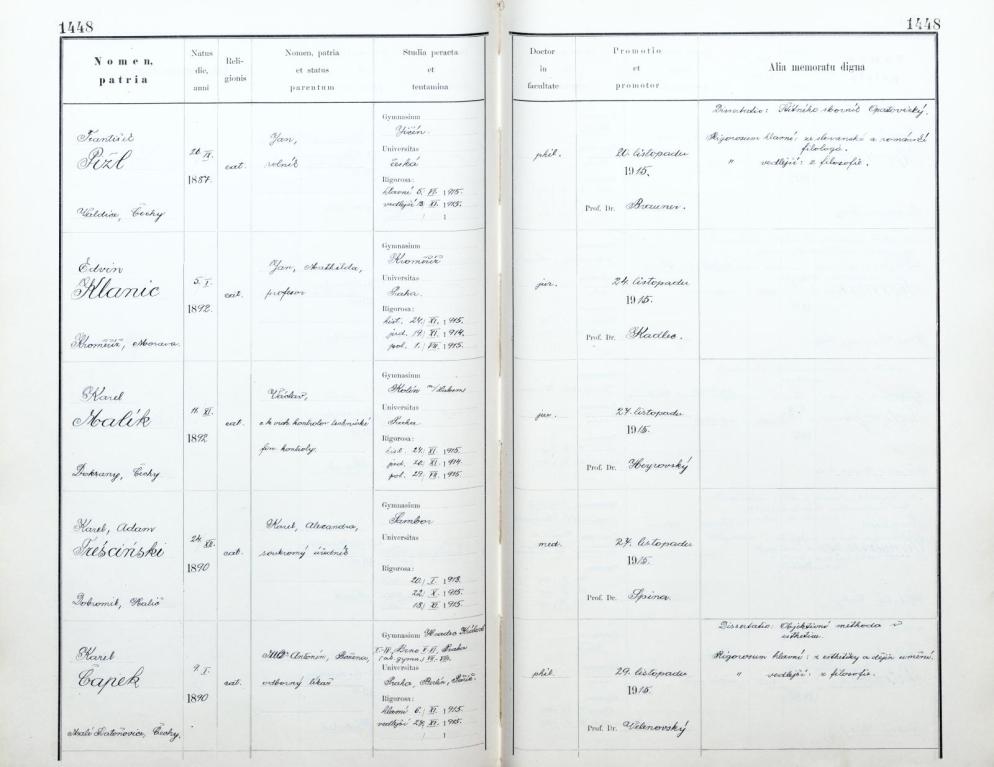 1448
1448
Nomen, patria
Natus die, anni
Religionis
Nomen, patria et status parentum
Studia peracta et tentamina
Doctor in facultate
Promotio et promotor
Alia memoratu digna
František
Pížl
Valdice, Čechy
26. VI.
1887.
cat.
Jan,
rolník
Gymnasium
Jičín.
Universitas
česká
Rigorosa:
hlavní 5. VI. 1915.
vedlejší 13. XI. 1915.
phil.
20. listopadu
1915.
Prof. Dr. Brauner.
Dissertatio: Štítného sborník Opatovický.
Rigorosum hlavní: ze slovanské a románské
filologie.
" vedlejší: z filosofie.
Edvin
Klanic
Kroměříž, Morava.
5. I.
1892.
cat.
Jan, Mathilda,
profesor
Gymnasium
Kroměříž
Universitas
Praha.
Rigorosa:
hist. 24. XI. 1915.
jud. 19. XI. 1914.
pol. 1. VII. 1915.
jur.
24. listopadu
1915.
Prof. Dr. Kadlec.
Karel
Malík
Dokzany, Čechy
11. XI.
1892
cat.
Václav,
c.k. vrch. kontrolor technické
fin. kontroly.
Gymnasium
Kolín n/Labem
Universitas
Praha
Rigorosa:
hist. 24. XI. 1915.
jud. 20. XI. 1914.
pol. 29. VII. 1915.
jur.
27. listopadu
1915.
Prof. Dr. Heyrovský
Karel, Adam
Treściński
Dobromil, Halič
24. XII.
1890
cat.
Karel, Alexandra,
soukromý úředník
Gymnasium
Sambor
Universitas
Rigorosa:
20. I. 1913.
22. X. 1915.
15. XI. 1915.
med.
27. listopadu
1915.
Prof. Dr. Spina.
Karel
Čapek
Malé Svatoňovice, Čechy.
9. I.
1890
cat.
MUDr Antonín, Božena,
odborný lékař
Gymnasium Hradec Králové
I.-IV. Brno V.-VI. Praha
(ak. gymn.) VII.-VIII.
Universitas
Praha, Berlín, Paříž.
Rigorosa:
hlavní 6. XI. 1915.
vedlejší 24. XI. 1915.
phil.
29. listopadu
1915.
Prof. Dr. Velenovský
Dissertatio: Objektivní methoda v
esthetice.
Rigorosum hlavní: z esthetiky a dějin umění.
" vedlejší: z filosofie.